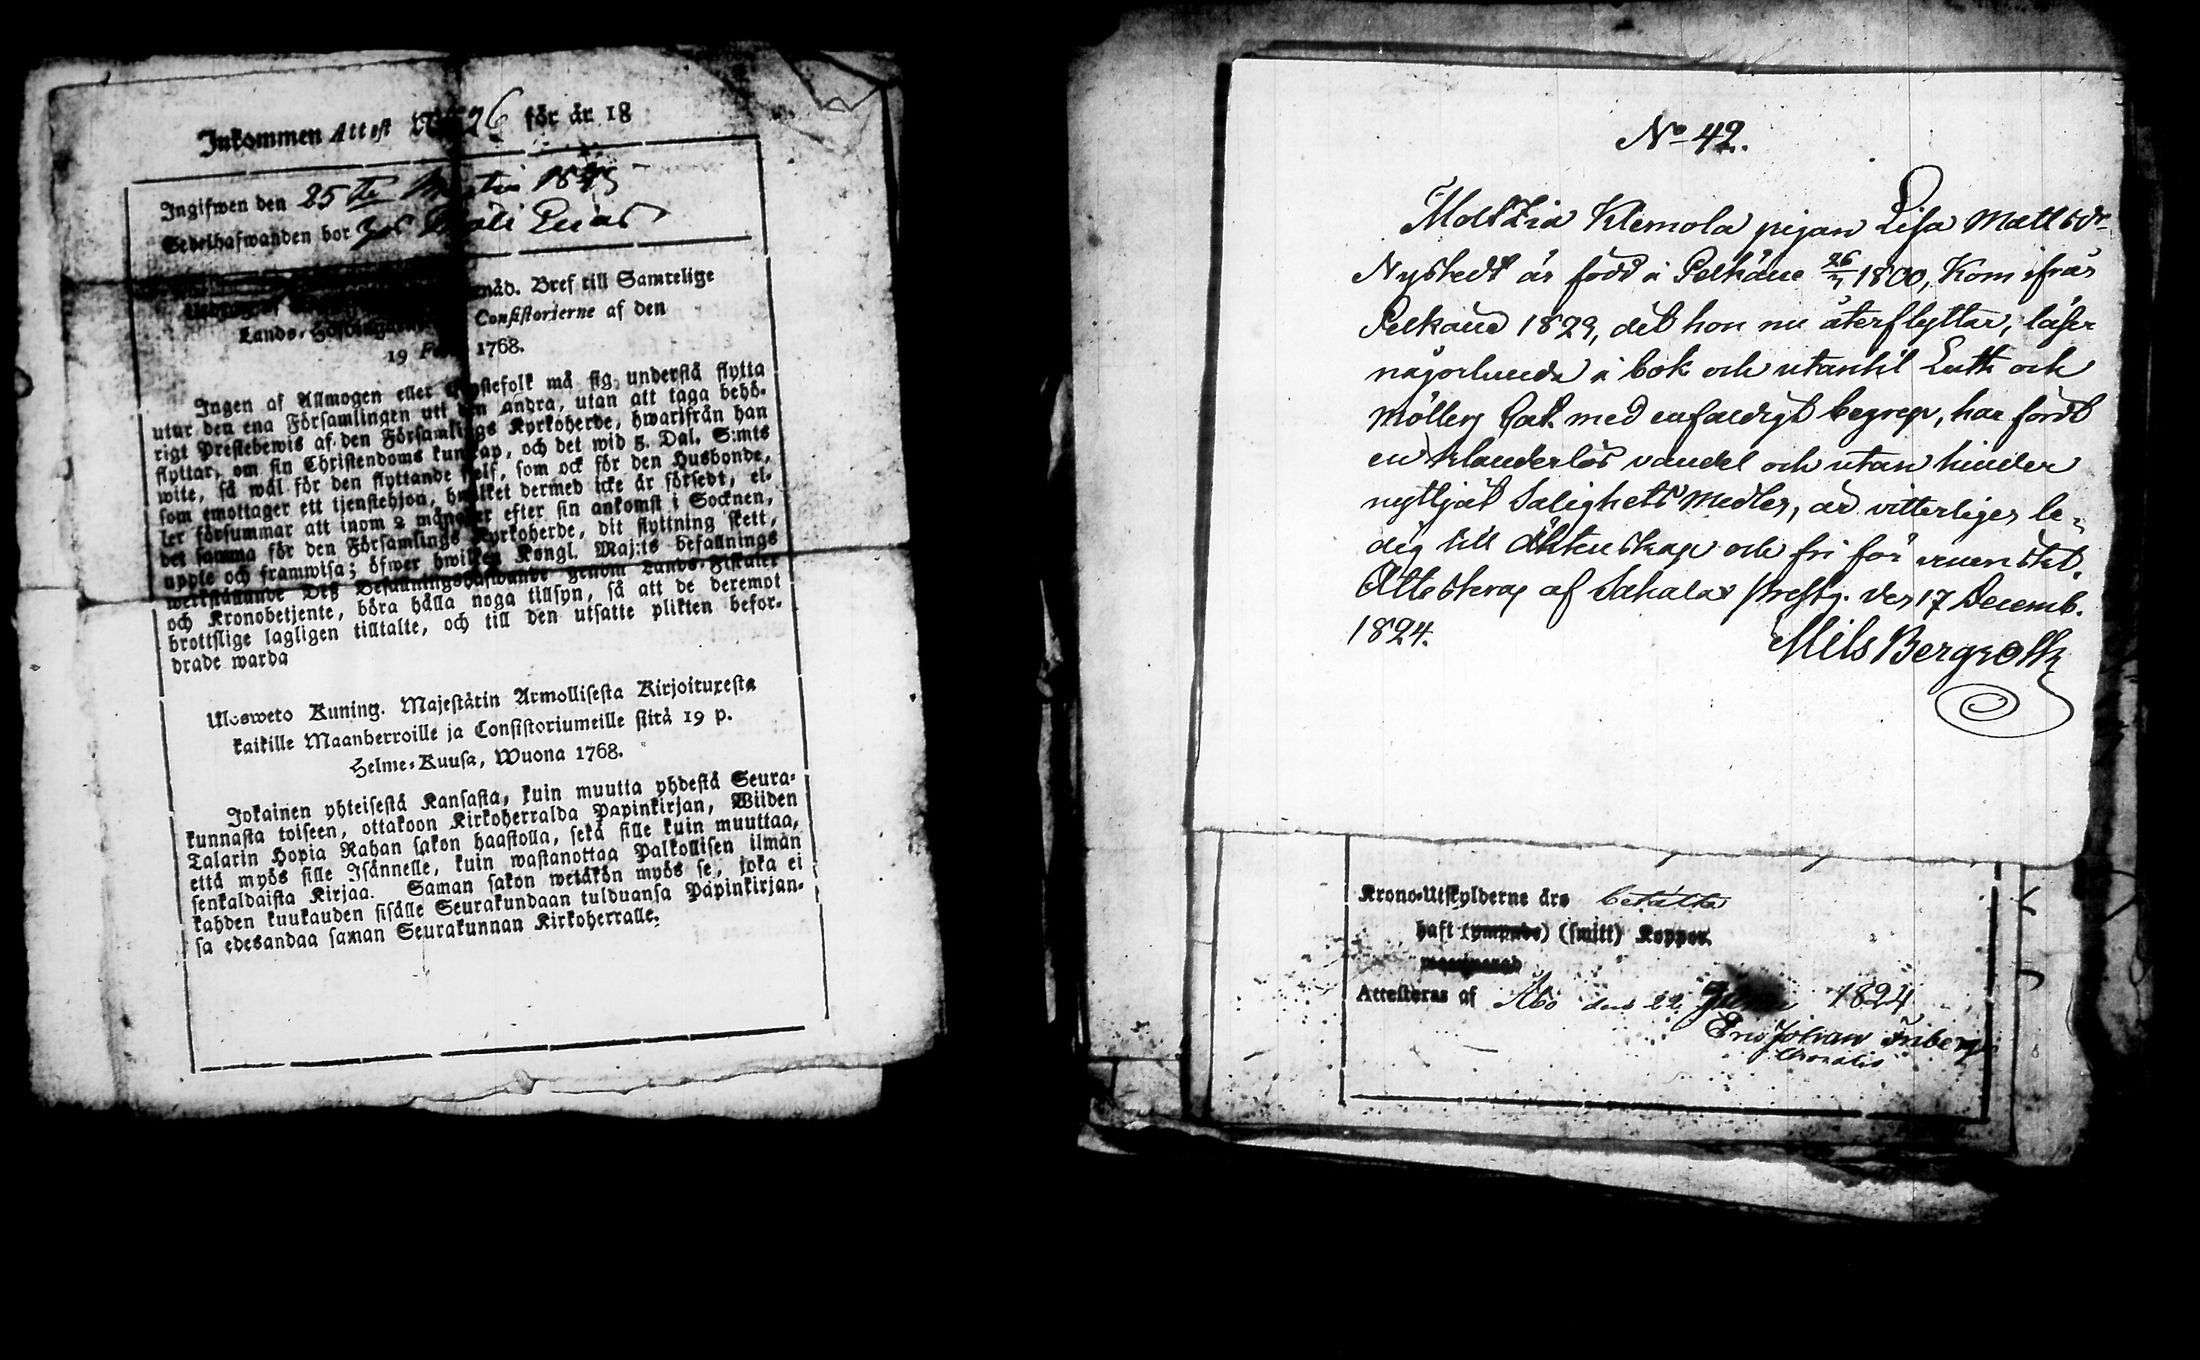 Inkommen Attest 26 för år 18
Ingifwen den 25 te Martii
Sedelhafwanden bor
nåd. Bref till Samtelige
Lands-Höfdingarne Consistorierne af den
19 Febr. 1768.
Ingen af Allmogen eller tjenstefolk må sig understå flytta
utur den ena Församlingen uti den andra, utan att taga behö-
rigt Prestebewis af den Församlings Kyrkoherde, hwarifrån han
flyttar, om sin Christendoms kunskap, och det wid 5. Dal. S:mts
wite, så wäl för den flyttande sjelf, som ock för den Husbonde,
som emottager ett tjenstehjon, hwilket dermed icke är försedt, el-
ler försummar att inom 2 månader efter sin ankomst i Socknen,
det samma för den Församlings Kyrkoherde, dit flyttning skett,
upple och framwisa; öfwer hwilken Kongl. Maj:ts befallnings
werkställande Deß Befallningshafwande genom Lands-Fiskaler
och Kronobetjente, böra hålla noga tillsyn, så att de deremot
brottslige lagligen tilltalte, och till den utsatte plikten befor-
drade warda
Ulosweto Kuning. Majestätin Armollisesta Kirjoituxesta
kaikille Maanherroille ja Consistoriumeille siitä 19 p.
Helme-Kuusa, Wuona 1768.
Jokainen yhteisestä Kansasta, kuin muutta yhdestä Seura-
kunnasta toiseen, ottakoon Kirkoherralda Papinkirjan, Wiiden
Talarin Hopia Rahan sakon haastolla, sekä sille kuin muuttaa,
että myös sille Isännelle, kuin wastanottaa Palkollisen ilman
senkaldaista Kirjaa. Saman sakon wetäkön myös se, joka ei
kahden kuukauden sisälle Seurakundaan tulduansa Papinkirjan-
sa edesandaa saman Seurakunnan Kirkoherralle.
No 42.
Klemola pigan Lisa Matts dr
Nystedt är född i Pelkäne 1800, Kom ifrån
Pelkäne 1823, dit hon nu återflyttar, läser
någorlunda i bok och utantil Luth och
Möllers Cat. med enfaldigt begrep, har fördt
en klanderlös vandel och utan hinder
nyttjat Salighets Medlen, är vitterligen le-
dig till Äktenskap och fri för
Attesteras af Sahalax Prestg. den 17 Decemb.
1824. Nils Bergroth
Krono-Utskylderne äro betalta
haft (ympade) (smitt) Koppor.
Attesteras af Åbo den 22 1824
Johan Friberg